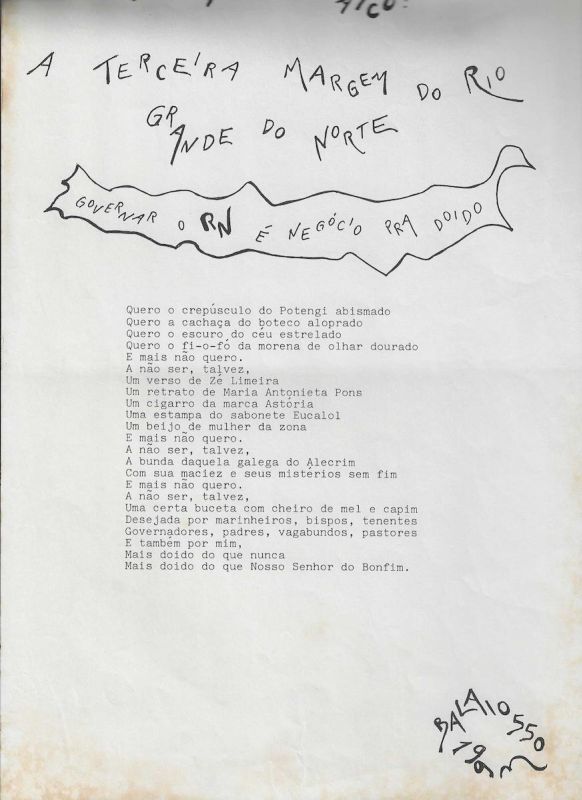 A TERCEIRA MARGEM DO RIO
GRANDE DO NORTE
GOVERNAR O RN É NEGÓCIO PRA DOIDO
Quero o crepúsculo do Potengi abismado
Quero a cachaça do boteco aloprado
Quero o escuro do céu estrelado
Quero o fi-o-fó da morena de olhar dourado
E mais não quero.
A não ser, talvez,
Um verso de Zé Limeira
Um retrato de Maria Antonieta Pons
Um cigarro da marca Astória
Uma estampa do sabonete Eucalol
Um beijo de mulher da zona
E mais não quero.
A não ser, talvez,
A bunda daquela galega do Alecrim
Com sua maciez e seus mistérios sem fim
E mais não quero.
A não ser, talvez,
Uma certa buceta com cheiro de mel e capim
Desejada por marinheiros, bispos, tenentes
Governadores, padres, vagabundos, pastores
E também por mim,
Mais doido do que nunca
Mais doido do que Nosso Senhor do Bonfim.
BALAIO 550